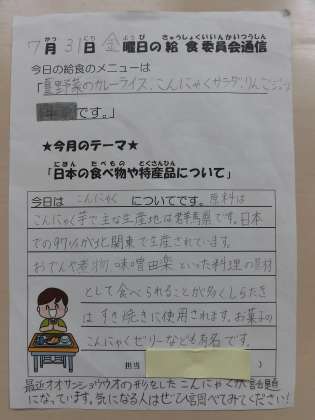 7月31日(金)曜日の給食委員会通信
今日の給食のメニューは
「夏野菜のカレーライス、こんにゃくサラダ、りんごジュース
牛乳です。」
★今月のテーマ★
「日本の食べ物や特産品について」
今日は こんにゃく についてです。原料は
こんにゃく芋で主な生産地は群馬県です。日本
での97%が北関東で生産されています。
おでんや煮物、味噌田楽といった料理の具材
として食べられることが多くしらたき
は すき焼きに使用されます。お菓子の
こんにゃくゼリーなども有名です。
担当 )
最近オオサンショウウオの形をしたこんにゃくが話題
になっています。気になる人はぜひ調べてみてください!